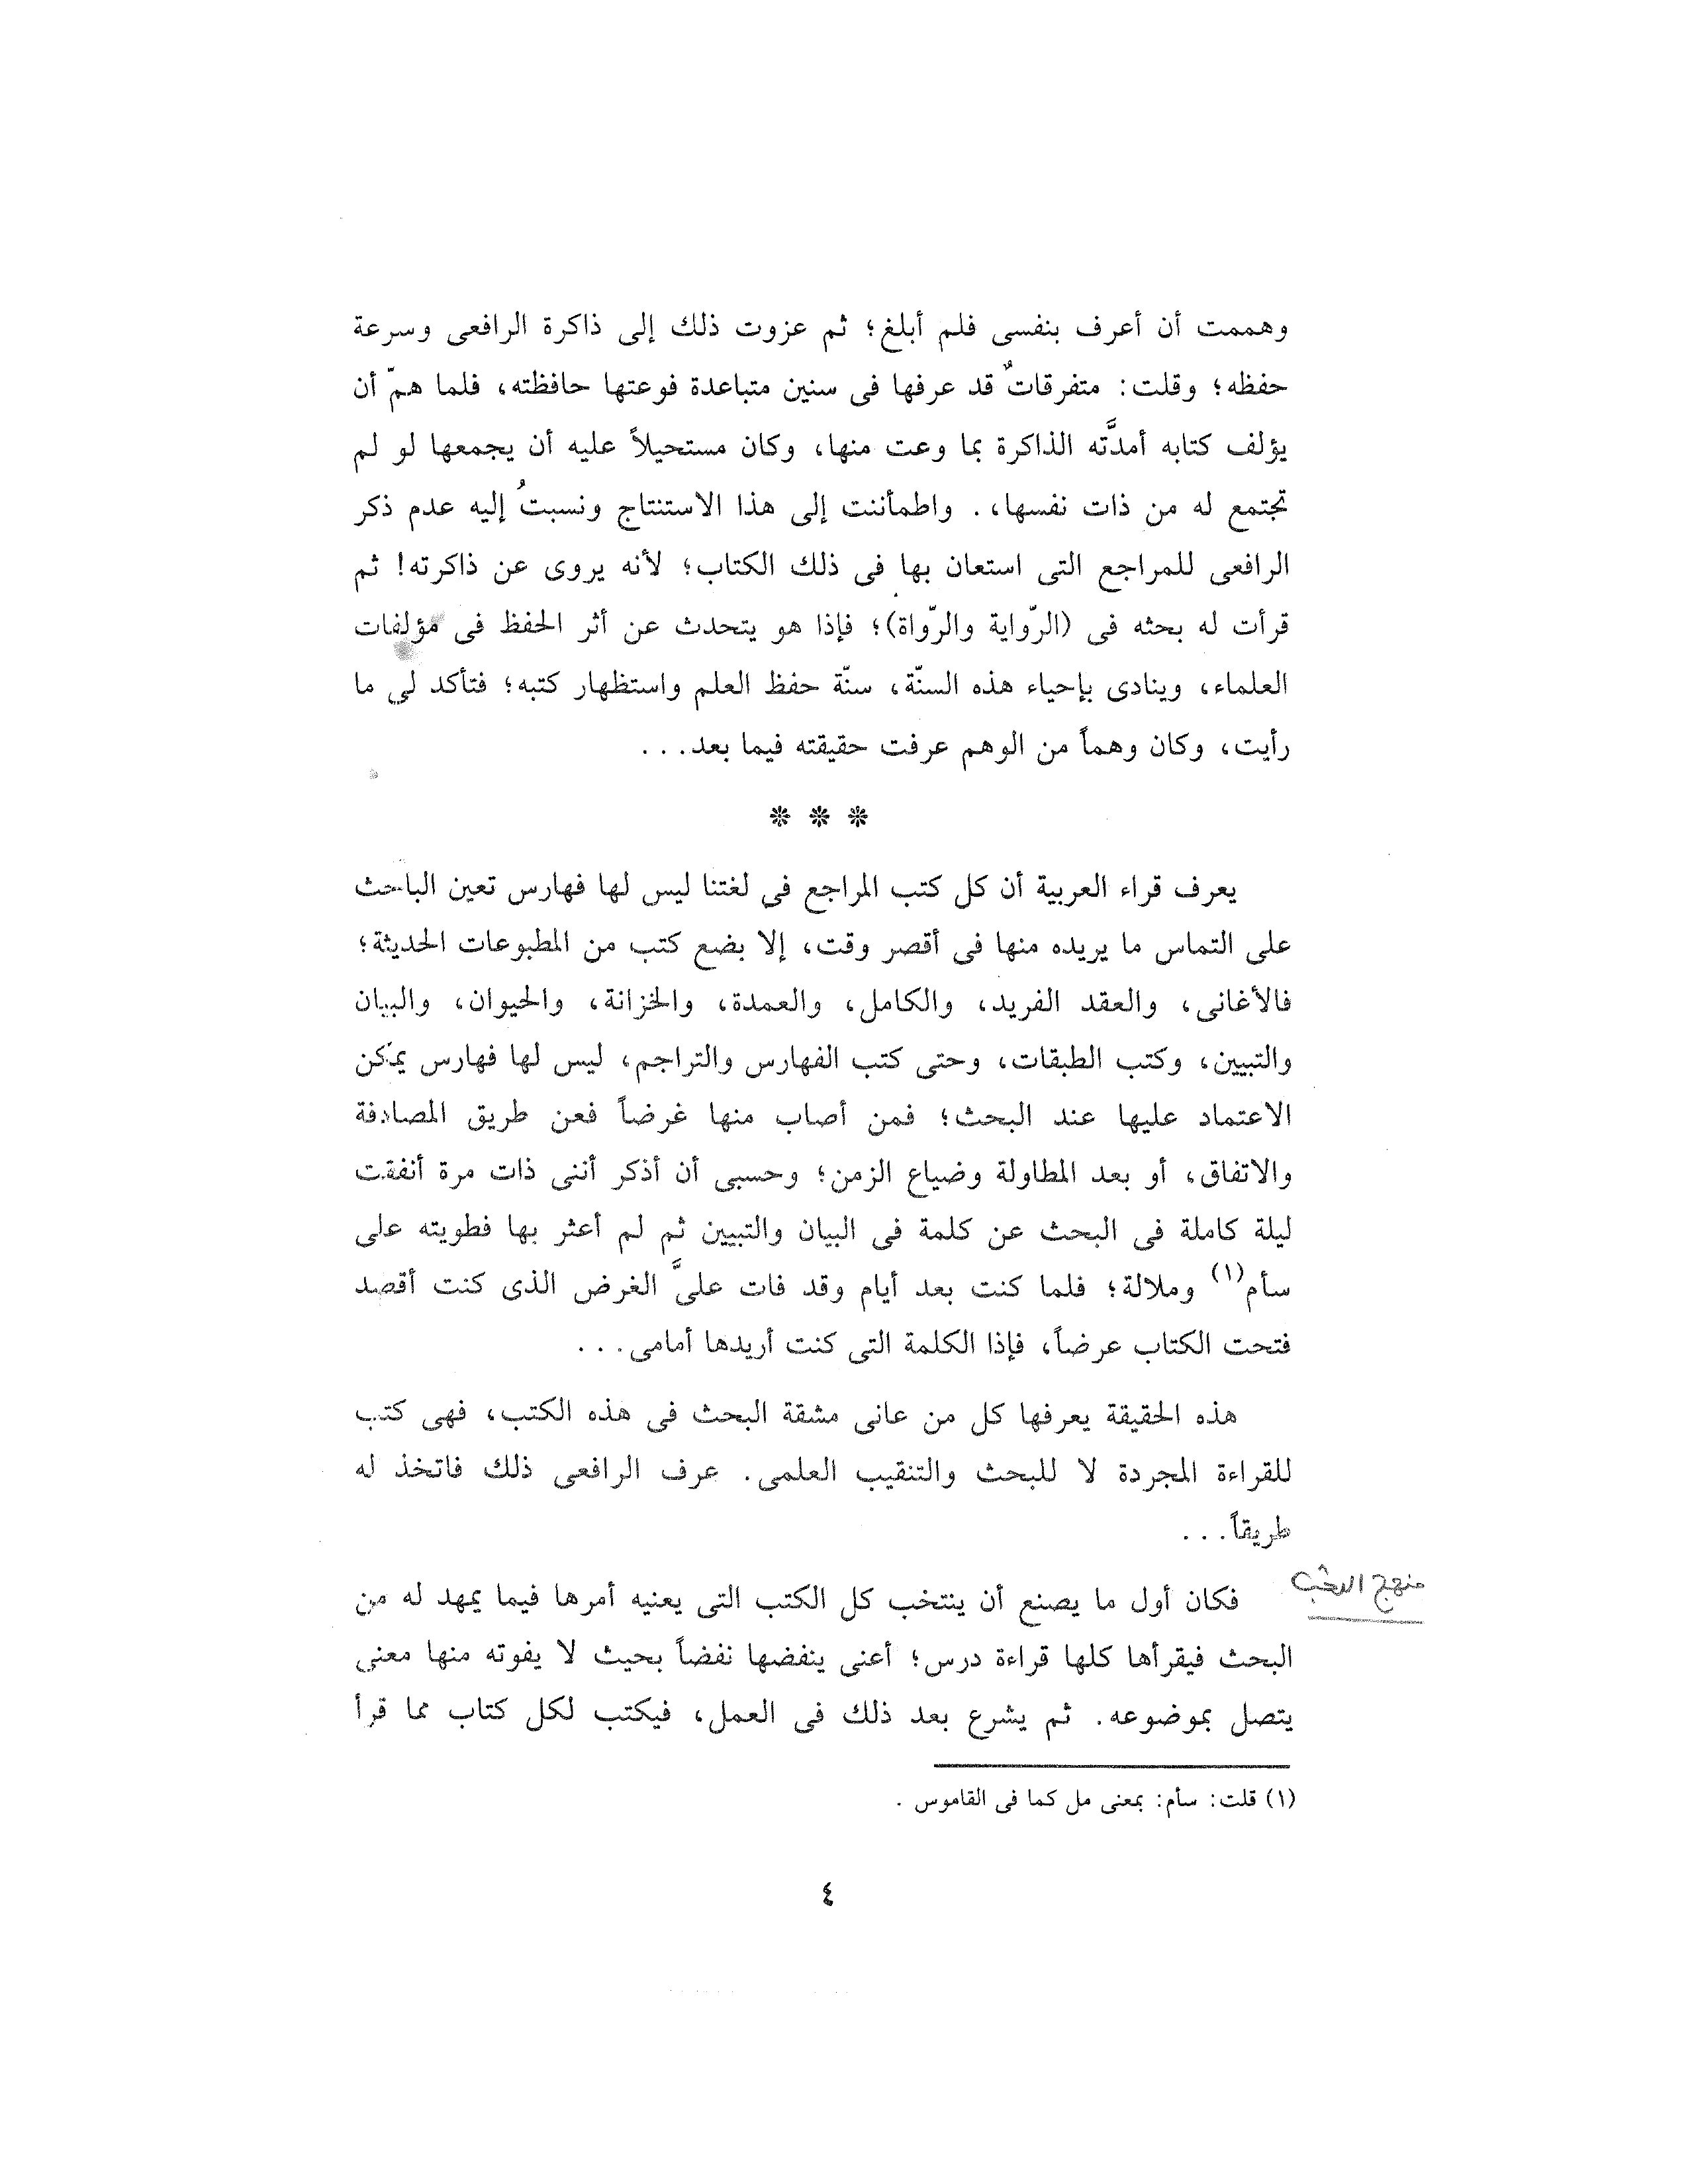 وهممت أن أعرف بنفسى فلم أبلغ؛ ثم عزوت ذلك إلى ذاكرة الرافعى وسرعة
حفظه؛ وقلت: متفرقاتٌ قد عرفها فى سنين متباعدة فوعتها حافظته، فلما همّ أن
يؤلف كتابه أمدَّته الذاكرة بما وعت منها، وكان مستحيلاً عليه أن يجمعها لو لم
تجتمع له من ذات نفسها،. واطمأننت إلى هذا الاستنتاج ونسبتُ إليه عدم ذكر
الرافعى للمراجع التى استعان بها فى ذلك الكتاب؛ لأنه يروى عن ذاكرته! ثم
قرأت له بحثه فى (الرّواية والرّواة)؛ فإذا هو يتحدث عن أثر الحفظ فى مؤلفات
العلماء، وينادى بإحياء هذه السنّة، سنّة حفظ العلم واستظهار كتبه؛ فتأكد لى ما
رأيت، وكان وهماً من الوهم عرفت حقيقته فيما بعد...
❊ ❊ ❊
يعرف قراء العربية أن كل كتب المراجع فى لغتنا ليس لها فهارس تعين الباحث
على التماس ما يريده منها فى أقصر وقت، إلا بضع كتب من المطبوعات الحديثة؛
فالأغانى، والعقد الفريد، والكامل، والعمدة، والخزانة، والحيوان، والبيان
والتبيين، وكتب الطبقات، وحتى كتب الفهارس والتراجم، ليس لها فهارس يمكن
الاعتماد عليها عند البحث؛ فمن أصاب منها غرضاً فعن طريق المصادفة
والاتفاق، أو بعد المطاولة وضياع الزمن؛ وحسبى أن أذكر أننى ذات مرة أنفقت
ليلة كاملة فى البحث عن كلمة فى البيان والتبيين ثم لم أعثر بها فطويته على
سأم(١) وملالة؛ فلما كنت بعد أيام وقد فات علىَّ الغرض الذى كنت أقصد
فتحت الكتاب عرضاً، فإذا الكلمة التى كنت أريدها أمامى...
هذه الحقيقة يعرفها كل من عانى مشقة البحث فى هذه الكتب، فهى كتب
للقراءة المجردة لا للبحث والتنقيب العلمى. عرف الرافعى ذلك فاتخذ له
طريقاً...
منهج البحث
فكان أول ما يصنع أن ينتخب كل الكتب التى يعنيه أمرها فيما يمهد له من
البحث فيقرأها كلها قراءة درس؛ أعنى ينفضها نفضاً بحيث لا يفوته منها معنى
يتصل بموضوعه. ثم يشرع بعد ذلك فى العمل، فيكتب لكل كتاب مما قرأ
(١) قلت: سأم: بمعنى مل كما فى القاموس .
٤